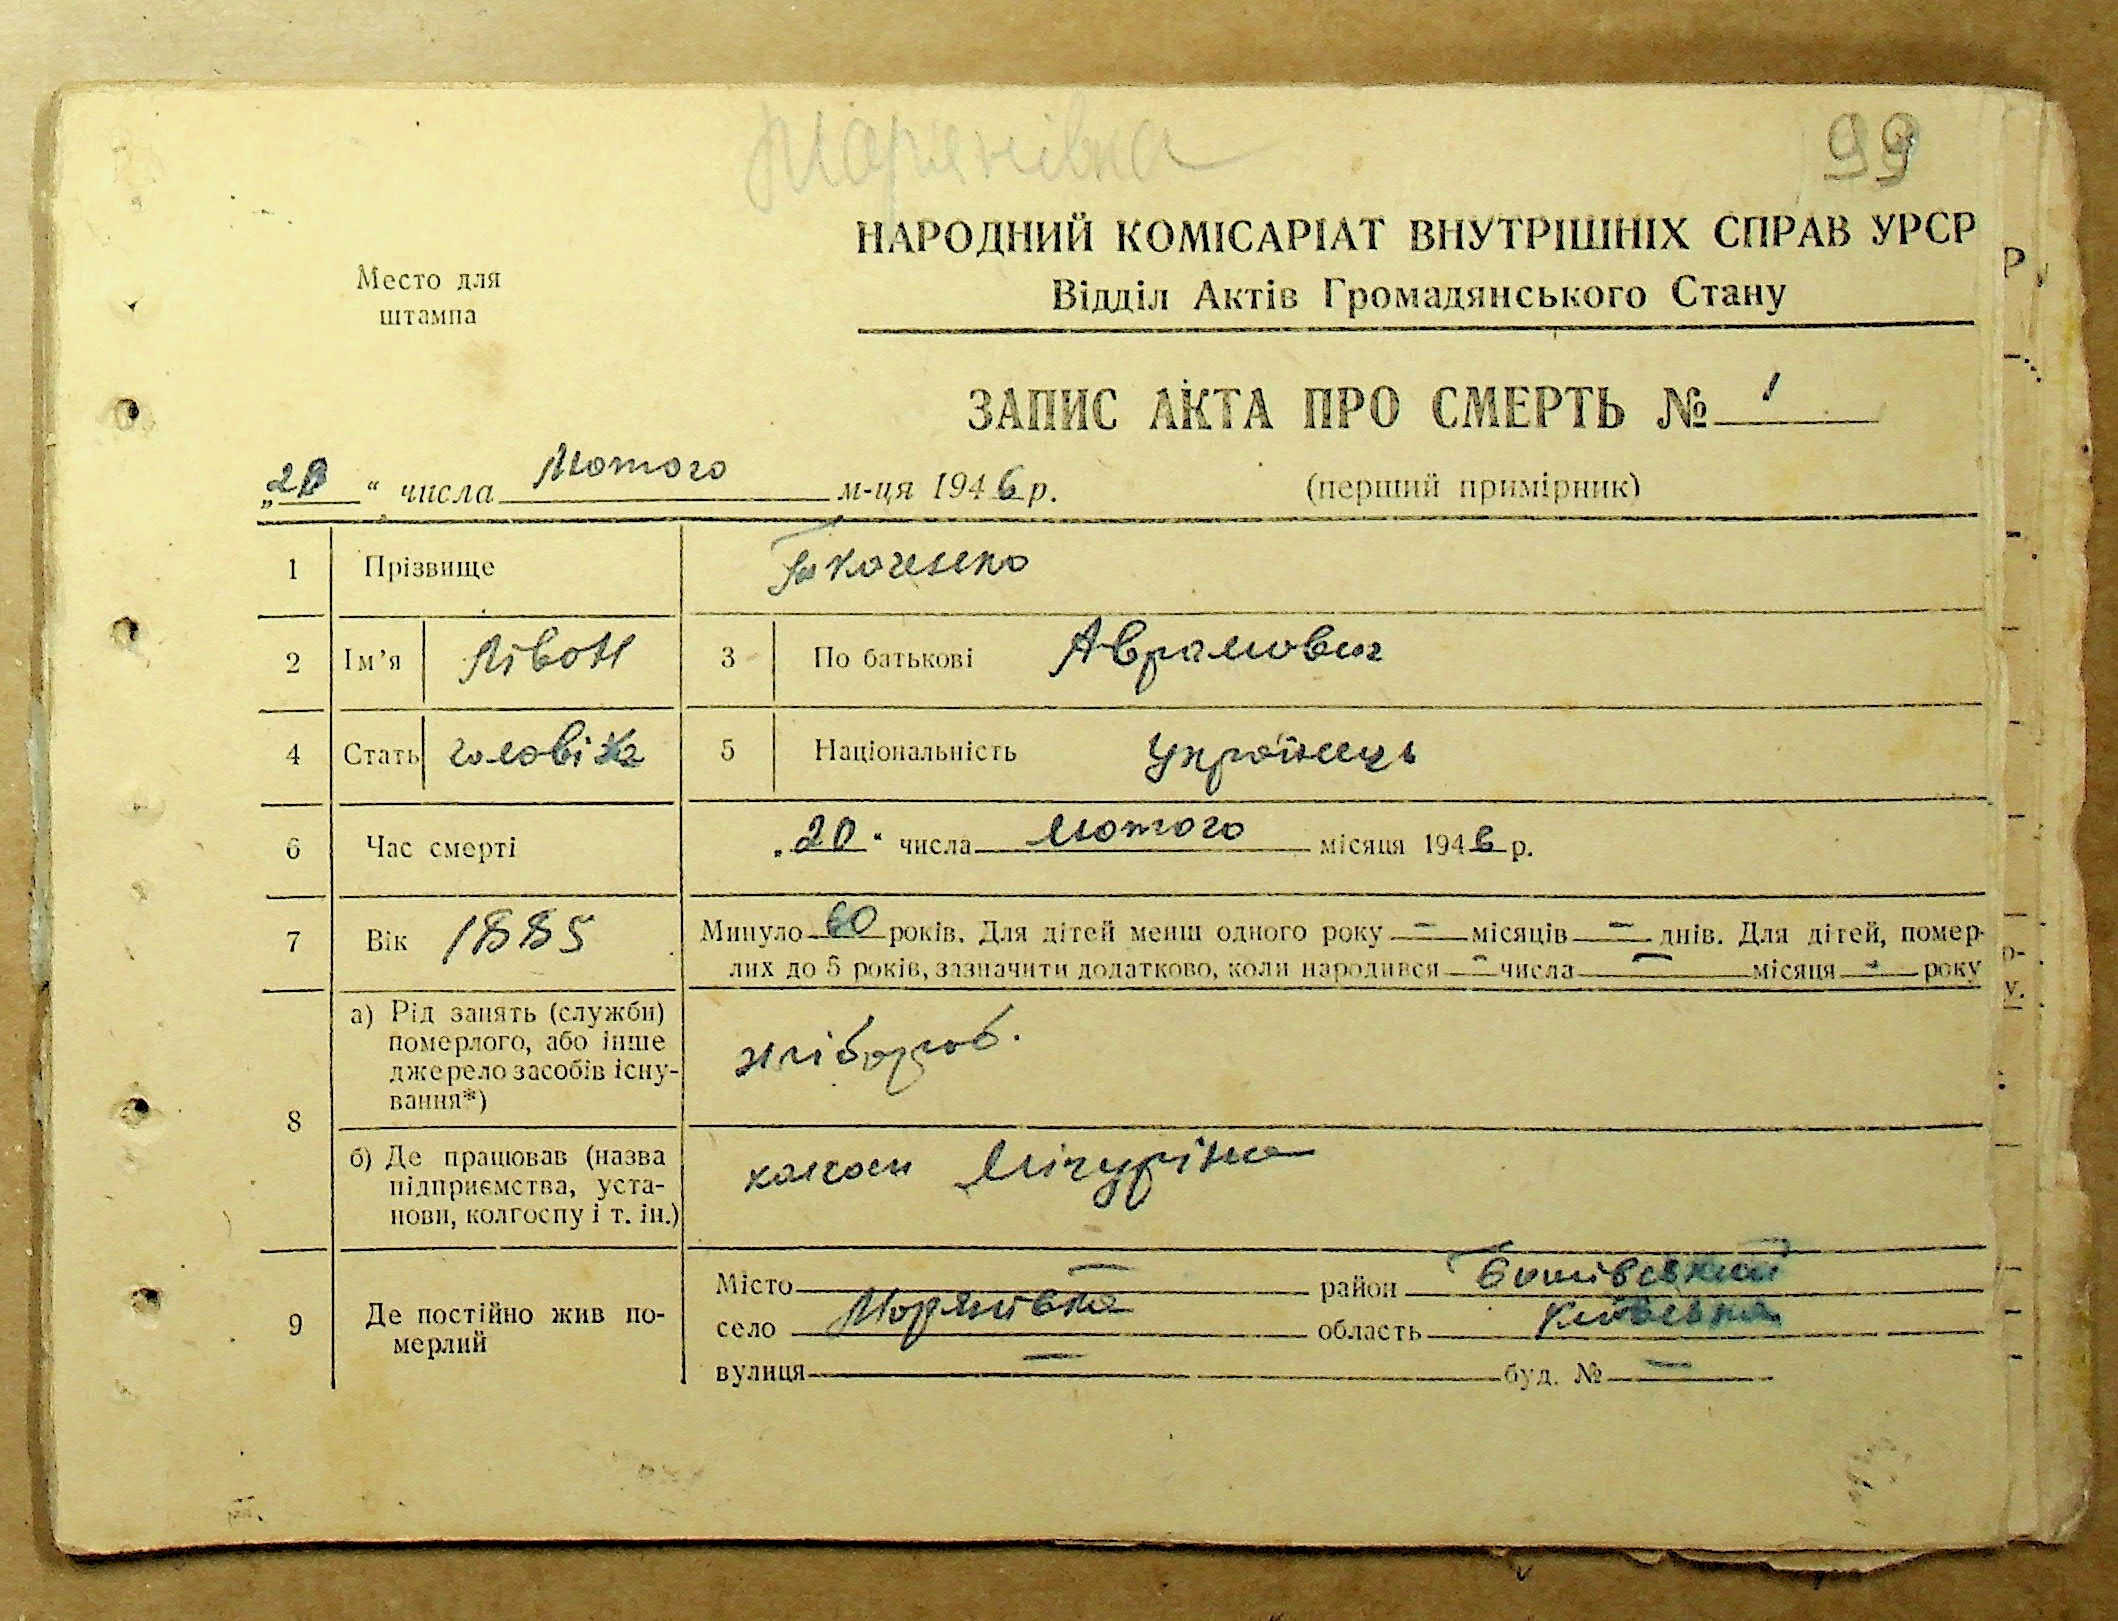 Мар'янівка
99
НАРОДНИЙ КОМІСАРІАТ ВНУТРІШНІХ СПРАВ УРСР
Відділ Актів Громадянського Стану
Место для
штампа
ЗАПИС АКТА ПРО СМЕРТЬ № 1
„20“ числа Лютого м-ця 1946 р. (перший примірник)
1 Прізвище
2 Ім'я Лівон 3 По батькові Аврамович
4 Стать чоловіча 5 Національність Українець
6 Час смерті „20“ числа Лютого місяця 1946 р.
7 Вік 1885 Минуло 60 років. Для дітей менш одного року — місяців — днів. Для дітей, помер-
лих до 5 років, зазначити додатково, коли народився — числа — місяця — року
8 а) Рід занять (служби)
померлого, або інше
джерело засобів існу-
вання*)
хлібороб.
б) Де працював (назва
підприємства, уста-
нови, колгоспу і т. ін.)
колгосп Мічуріна
9 Де постійно жив по-
мерлий
Місто — район Бишівський
село Мар'янівка область Київська
вулиця — буд. № —